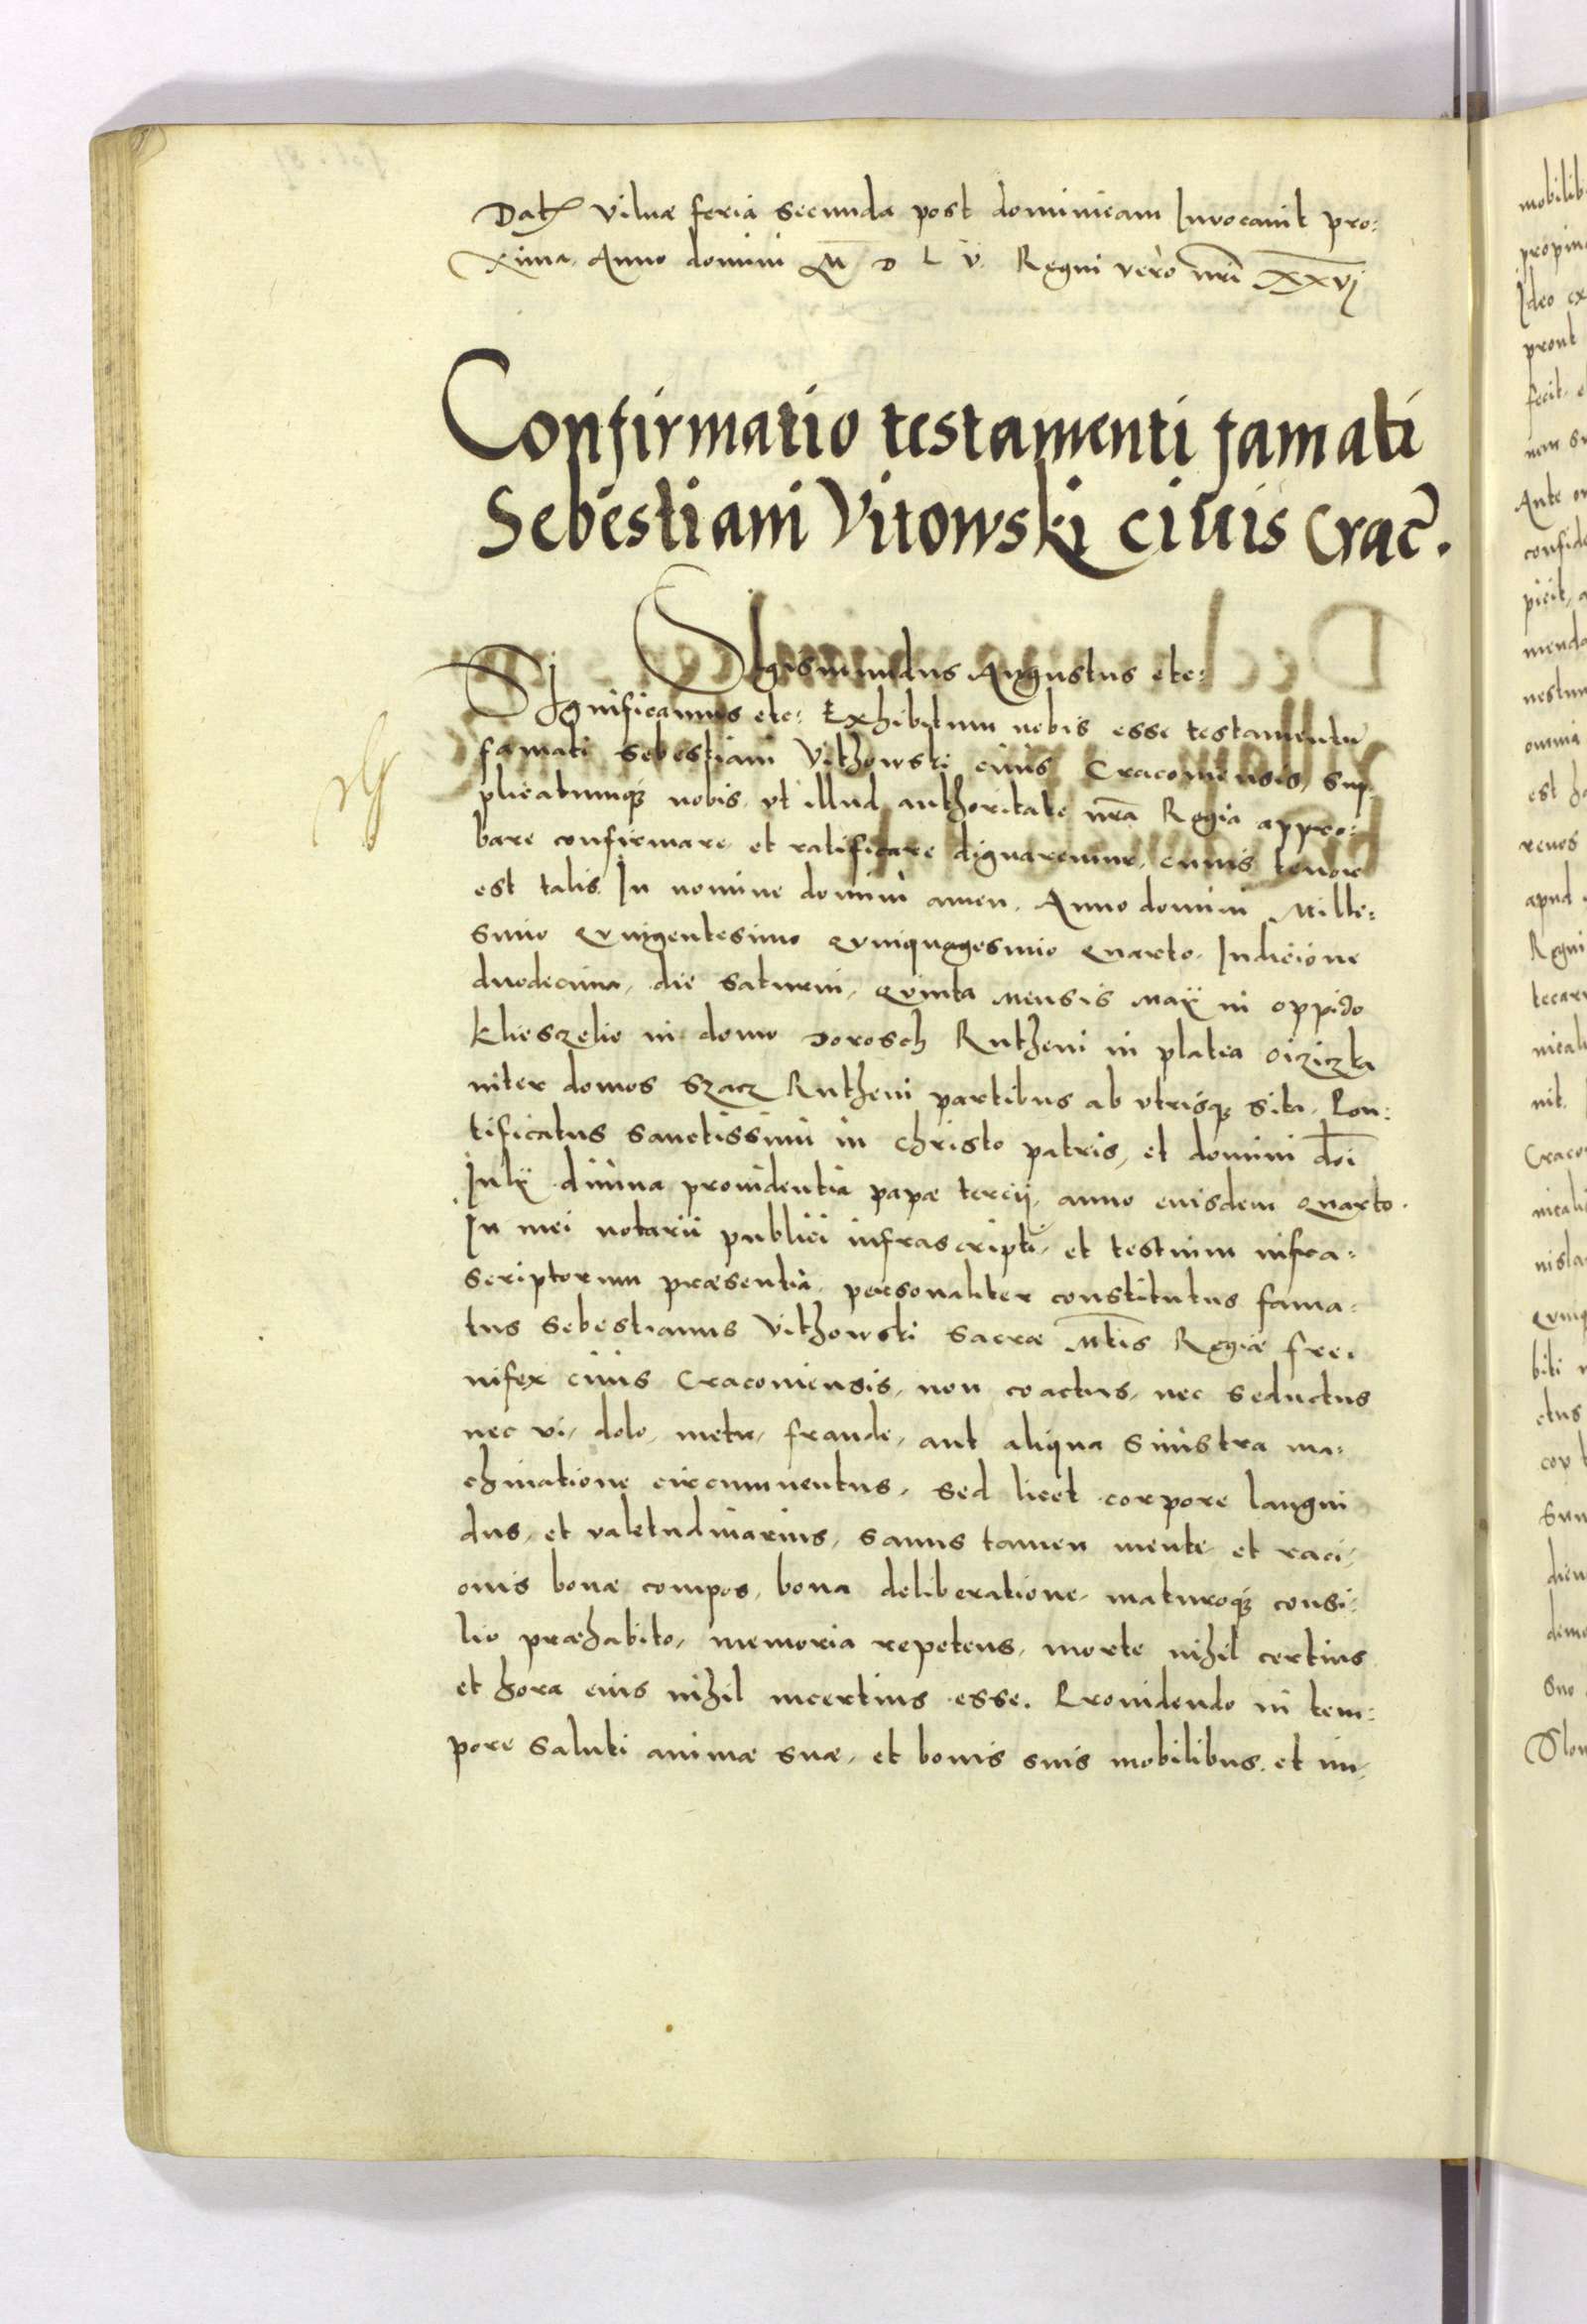 Dat Vilnæ feria secunda post dominicam Invocavit pro:
xima. Anno domini M D L V. Regni vero nrĩ XXVj
Confirmatio testamenti famati
Sebestiani Vitowski civis Crac̃.
Sigismundus Augustus etc:
Significamus etc: Exhibitum nobis esse testamentũ
famati Sebestiani Vithowski civis Cracoviensis, Sup
plicatumq3 nobis, vt illud authoritate nrã Regia appro:
bare confirmare et ratificare dignaremur, cuius tenor
est talis. In nomine domini amen. Anno domini Mille:
simo Quingentesimo Quinquagesimo Quarto. Indicione
duodecima, die Saturni, Quinta mensis Maÿ in oppido
Klieszelie in domo Dorosch Rutheni in platea
inter domos Szacz Rutheni partibus ab vtrisq3 sita, Pon:
tificatus Sanctissimi in Christo patris, et domini dñi
Julÿ divina providentia papæ tercij, anno eiusdem Quarto.
In mei notarii publici infrascripti, et testium infra:
scriptorum præsentia, personaliter constitutus fama:
tus Sebestianus Vithowski Sacræ Mtis Regiæ fre:
nifex civis Cracoviensis, non coactus, nec seductus
nec vi, dolo, metu, fraude, aut aliqua sinistra ma:
chinatione circumventus, sed licet corpore langui
dus, et valetudinarius, sanus tamen mente et raci:
onis bonæ compos, bona deliberatione, maturoq3 consi:
lio præhabito, memoria repetens, morte nihil certius
et hora eius nihil incertius esse. Providendo in tem:
pore saluti animæ suæ, et bonis suis mobilibus et im: